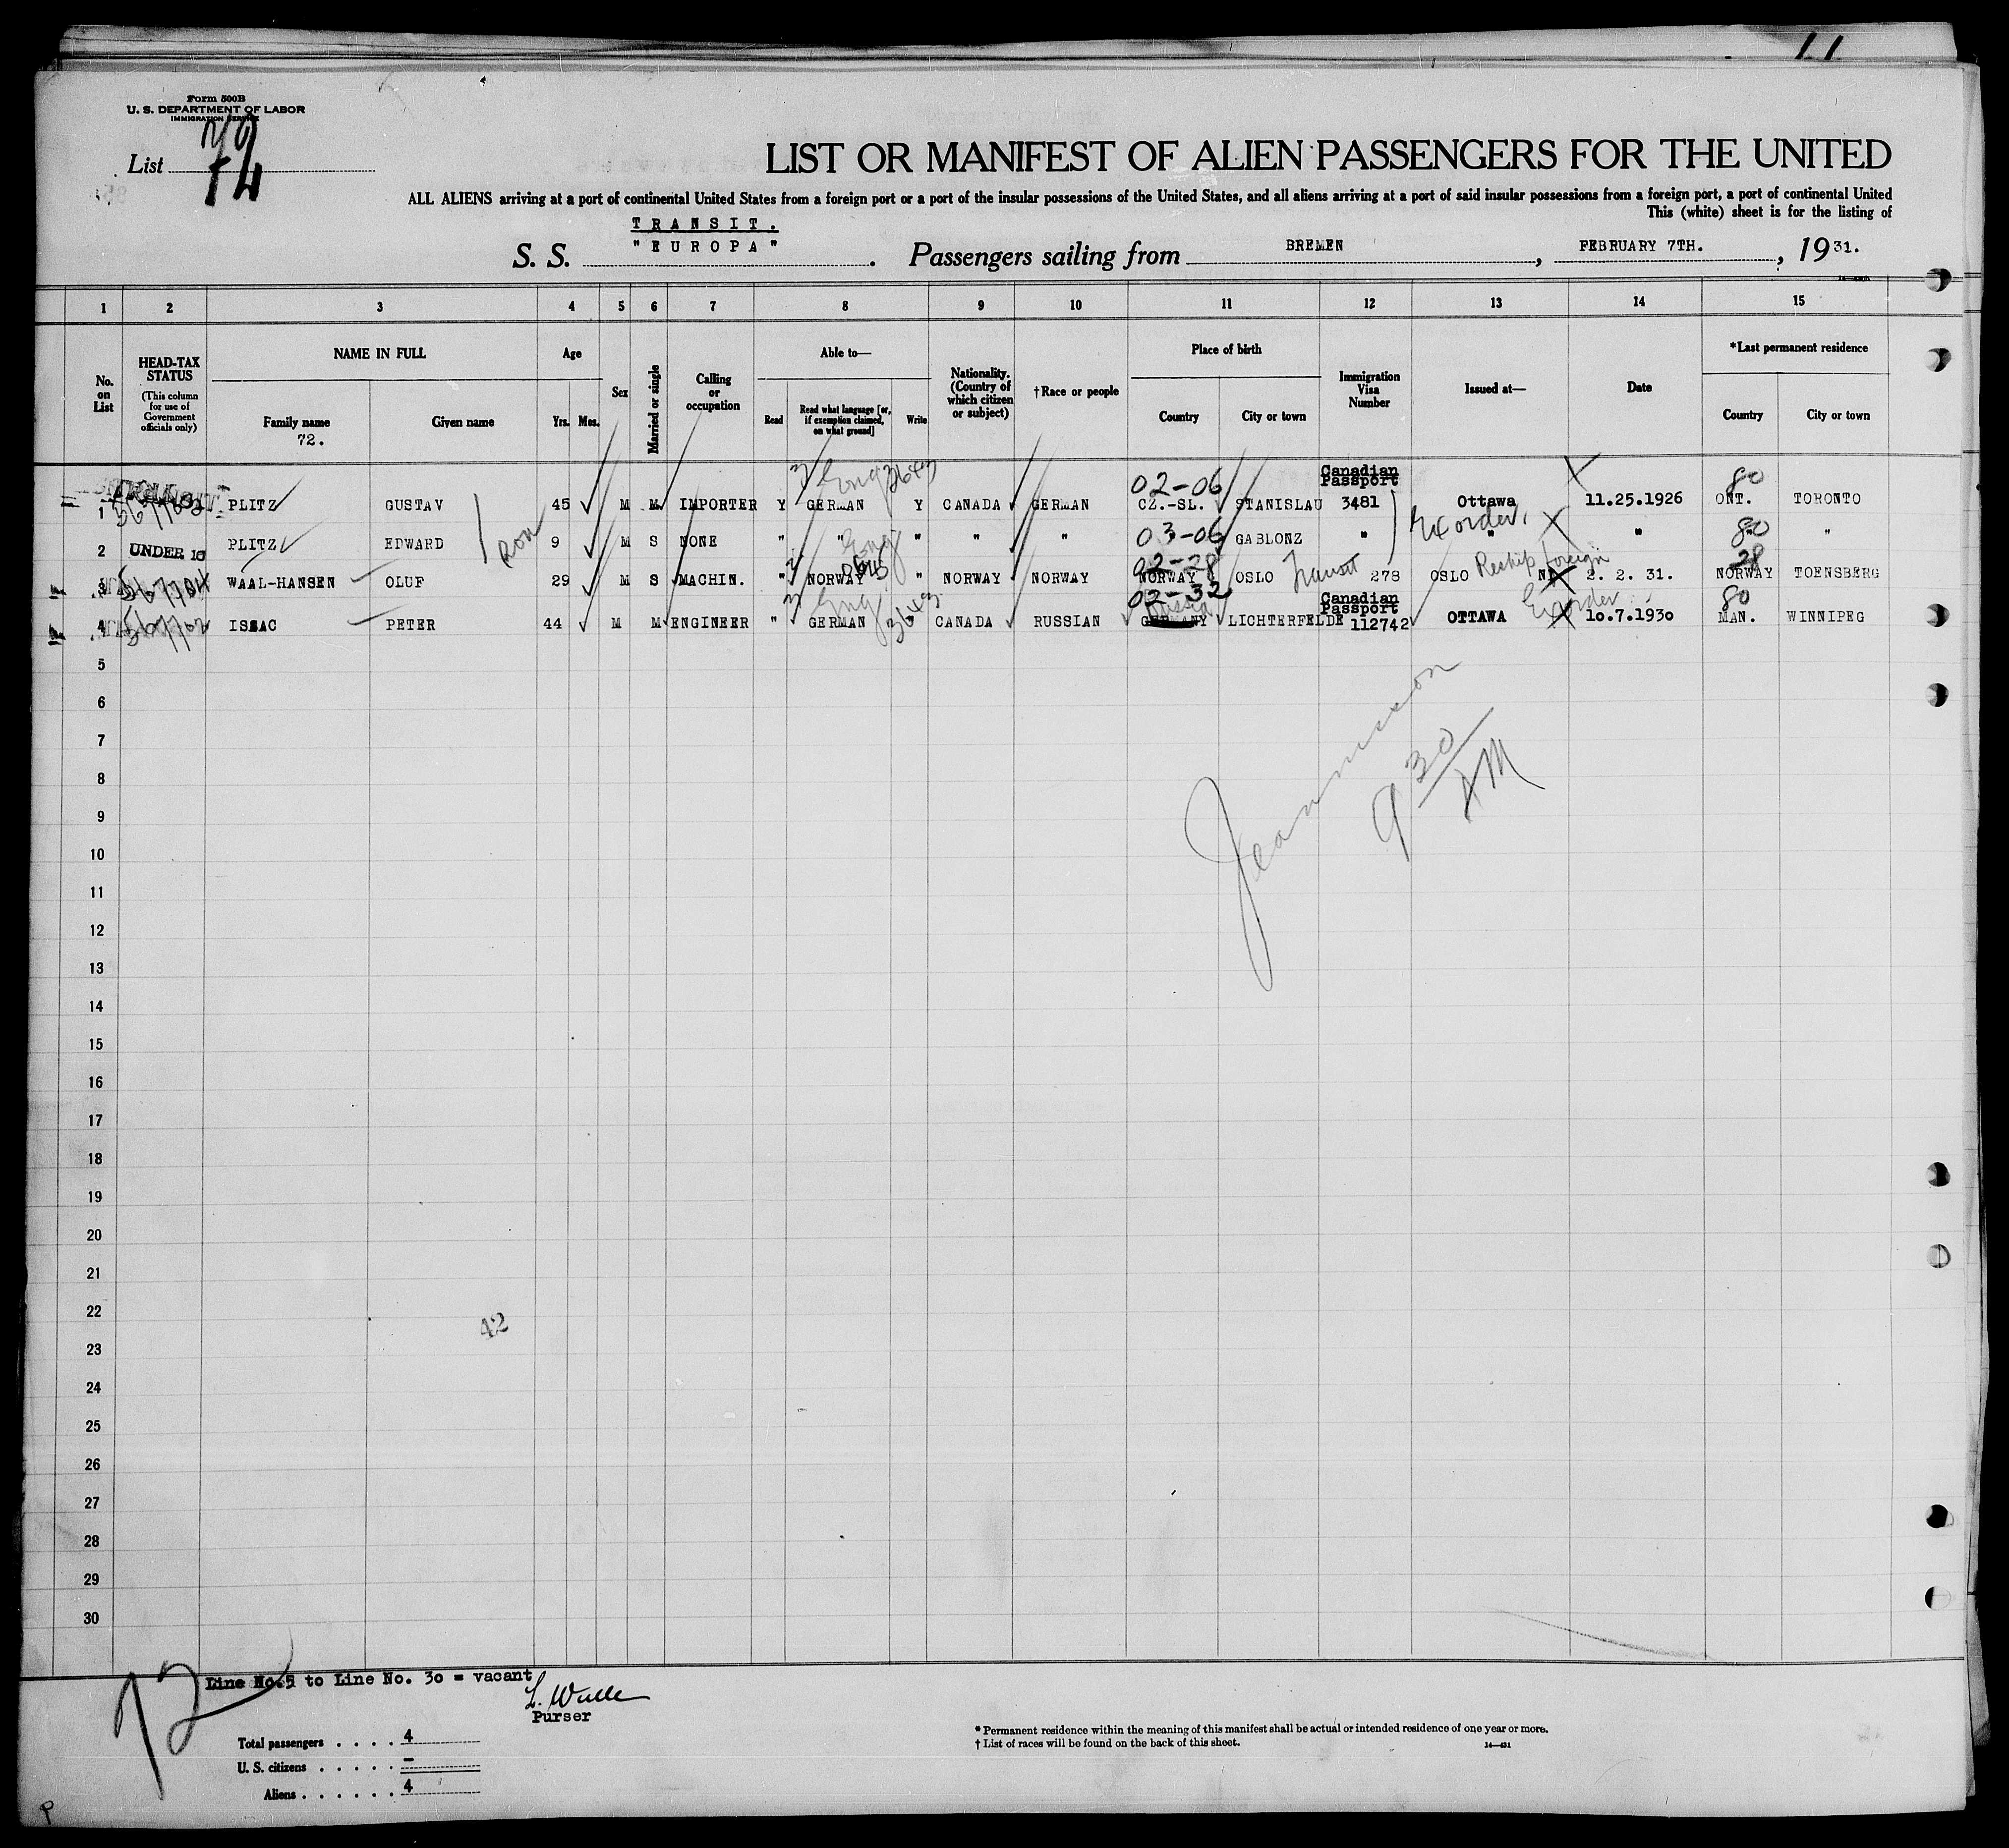 Form 500B
U. S. DEPARTMENT OF LABOR
IMMIGRATION SERVICE
List
LIST OR MANIFEST OF ALIEN PASSENGERS FOR THE UNITED
ALL ALIENS arriving at a port of continental United States from a foreign port or a port of the insular possessions of the United States, and all aliens arriving at a port of said insular possessions from a foreign port, a port of continental United
This (white) sheet is for the listing of
TRANSIT.
S. S. "EUROPA". Passengers sailing from BREMEN, FEBRUARY 7TH., 1931.
1 2 3 4 5 6 7 8 9 10 11 12 13 14 15
No. on List
HEAD-TAX STATUS
(This column for use of Government officials only)
NAME IN FULL
Family name
72.
Given name
Age
Yrs. Mos.
Sex
Married or single
Calling or occupation
Able to—
Read
Read what language [or, if exemption claimed, on what ground]
Write
Nationality. (Country of which citizen or subject)
†Race or people
Place of birth
Country
City or town
Immigration Visa Number
Issued at—
Date
*Last permanent residence
Country
City or town
Eng
02-06
Canadian Passport
80
1 PLITZ GUSTAV 45 M M IMPORTER Y GERMAN Y CANADA GERMAN CZ.-SL. STANISLAU 3481 Ottawa 11.25.1926 ONT. TORONTO
Eng 03-06 80
2 UNDER 16 PLITZ EDWARD 9 M S NONE " " " " " GABLONZ " " " " "
02-28 Transit Reship foreign 28
3 WAAL-HANSEN OLUF 29 M S MACHIN. " NORWAY " NORWAY NORWAY NORWAY OSLO 278 OSLO 2. 2. 31. NORWAY TOENSBERG
Eng 02-32 Russia Canadian Passport 80
4 ISSAC PETER 44 M M ENGINEER " GERMAN " CANADA RUSSIAN GERMANY LICHTERFELDE 112742 OTTAWA 10.7.1930 MAN. WINNIPEG
5
6
7
8
9
9 30 AM
10
11
12
13
14
15
16
17
18
19
20
21
22
42
23
24
25
26
27
28
29
30
72
Line No.5 to Line No. 30 = vacant
Purser
Total passengers . . . . 4
U. S. citizens . . . . . –
Aliens . . . . . . 4
* Permanent residence within the meaning of this manifest shall be actual or intended residence of one year or more.
† List of races will be found on the back of this sheet.
14—431